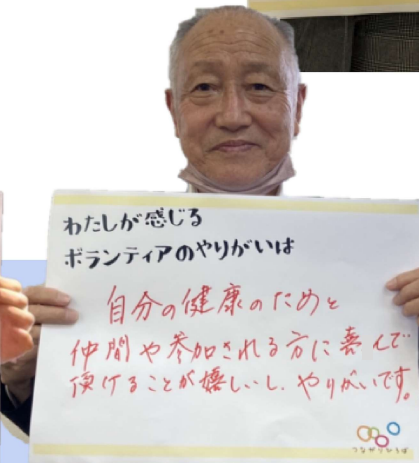 わたしが感じる
ボランティアのやりがいは
自分の健康のためと
仲間や参加される方に喜んで
頂けることが嬉しいし、やりがいです。
つながりひろば